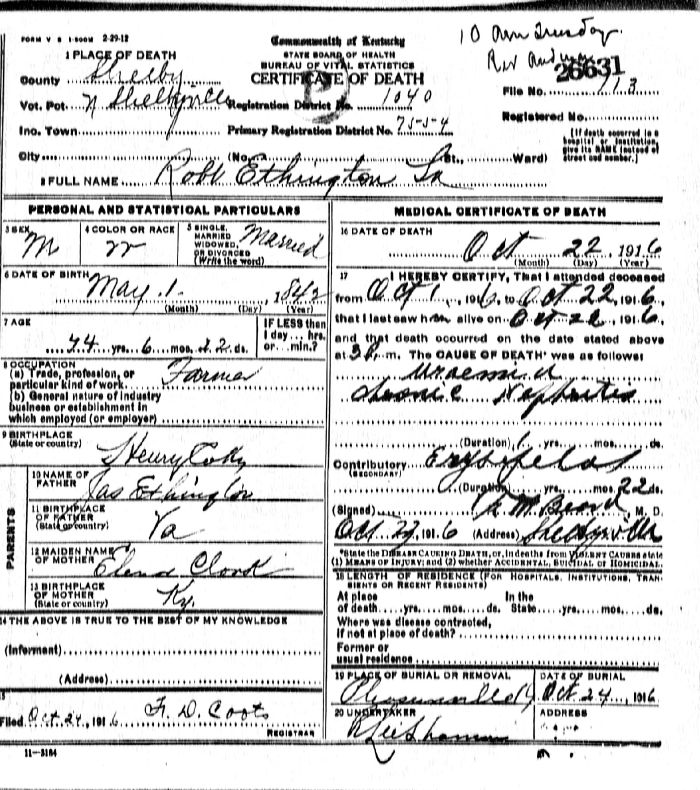 FORM V S 1-500M 2-29-12
Commonwealth of Kentucky
10 am Tuesday
STATE BOARD OF HEALTH
BUREAU OF VITAL STATISTICS
CERTIFICATE OF DEATH
Rev
26631
1 PLACE OF DEATH
County Shelby
File No. 113
Vot. Pct. N Shelbyville Registration District No. 1040
Registered No.
Inc. Town Primary Registration District No. 7554
[If death occurred in a hospital or institution, give its NAME instead of street and number.]
City (No. St., Ward)
2 FULL NAME Robt Ethington Sr
PERSONAL AND STATISTICAL PARTICULARS
3 SEX M
4 COLOR OR RACE W
5 SINGLE, MARRIED WIDOWED, OR DIVORCED (Write the word) Married
6 DATE OF BIRTH May 1, 1842
(Month) (Day) (Year)
7 AGE 74 yrs. 6 mos. 22 ds.
IF LESS then 1 day... hrs. or... min.?
8 OCCUPATION
(a) Trade, profession, or particular kind of work Farmer
(b) General nature of industry business or establishment in which employed (or employer)
9 BIRTHPLACE (State or country) Henry Co Ky
PARENTS
10 NAME OF FATHER Jas Ethington
11 BIRTHPLACE OF FATHER (State or country) Va
12 MAIDEN NAME OF MOTHER Clark
13 BIRTHPLACE OF MOTHER (State or country) Ky.
14 THE ABOVE IS TRUE TO THE BEST OF MY KNOWLEDGE
(Informant)
(Address)
15
Filed Oct 24, 1916 F. D. Coots
REGISTRAR
11—3184
MEDICAL CERTIFICATE OF DEATH
16 DATE OF DEATH
Oct 22 1916
(Month) (Day) (Year)
17 I HEREBY CERTIFY, That I attended deceased
from Oct 1, 1916, to Oct 22, 1916,
that I last saw him alive on Oct 22, 1916,
and that death occurred on the date stated above
at 3 P. m. The CAUSE OF DEATH* was as follows:
Uraemia
Chronic Nephritis
(Duration) 1 yrs. mos. ds.
Contributory Erysipelas
(SECONDARY)
(Duration) yrs. mos. 22 ds.
(Signed) M Beard, M. D.
Oct 22, 1916 (Address) Shelbyville
*State the DISEASE CAUSING DEATH, or, in deaths from VIOLENT CAUSES state
(1) MEANS OF INJURY; and (2) whether ACCIDENTAL, SUICIDAL or HOMICIDAL.
18 LENGTH OF RESIDENCE (FOR HOSPITALS, INSTITUTIONS, TRANSIENTS OR RECENT RESIDENTS)
At place of death yrs. mos. ds. In the State yrs. mos. ds.
Where was disease contracted,
If not at place of death?
Former or
usual residence
19 PLACE OF BURIAL OR REMOVAL Pleasureville Ky
DATE OF BURIAL Oct 24, 1916
20 UNDERTAKER
ADDRESS